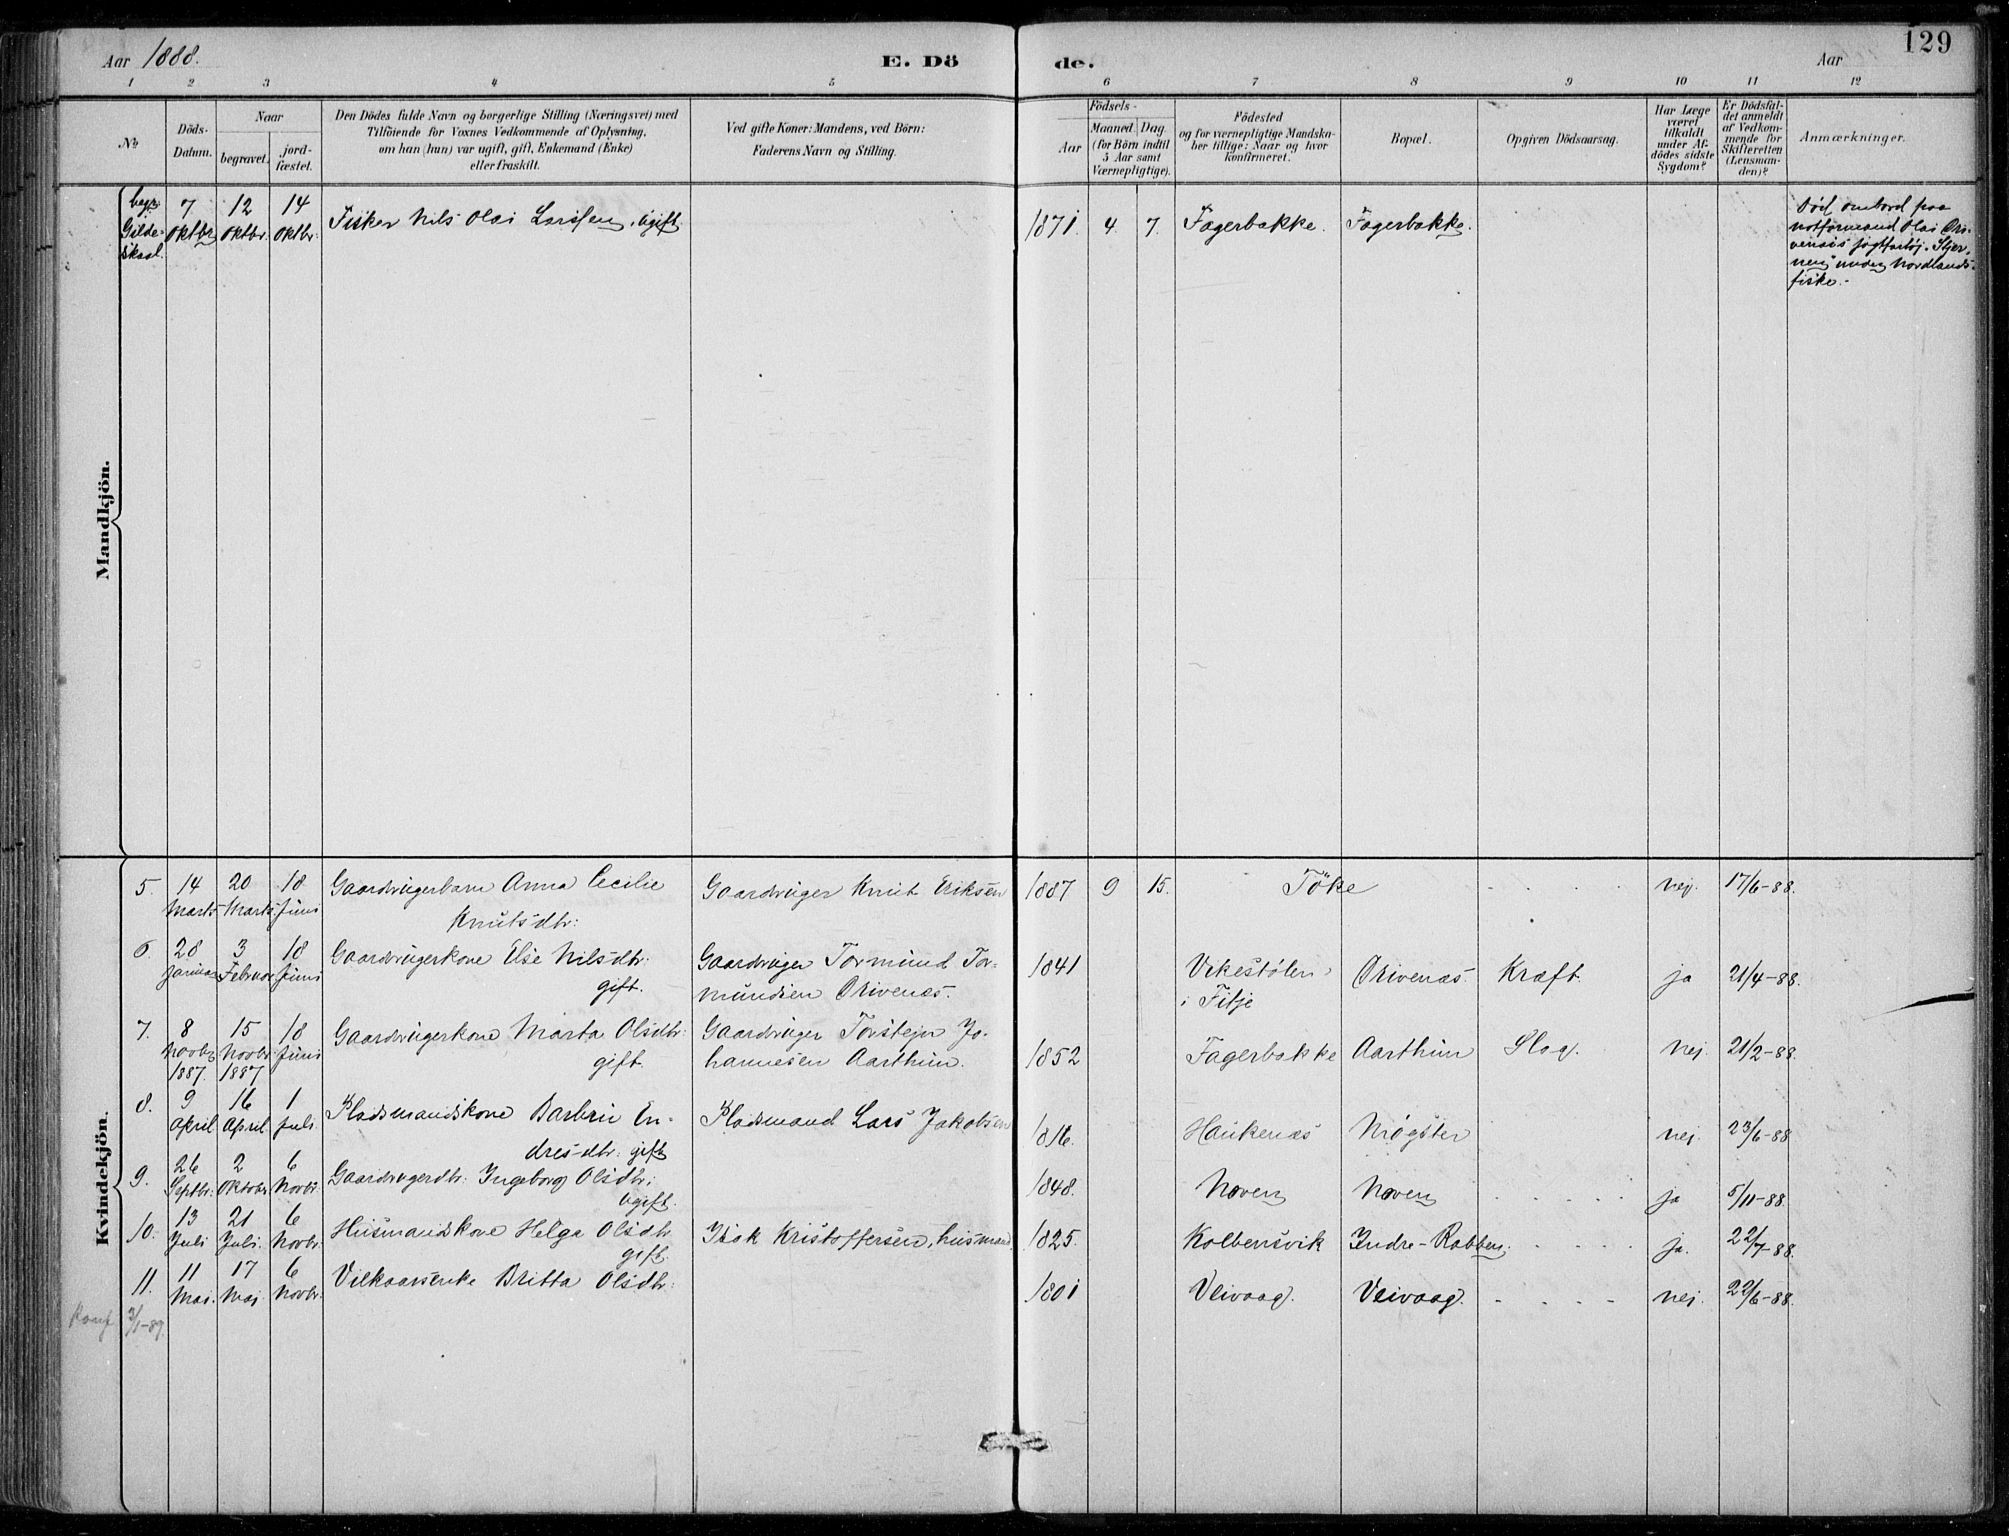 Aar 1888.
E. Dö
de.
Aar
129
1 2 3 4 5 6 7 8 9 10 11 12
№
Döds-
Datum.
Naar
begravet.
jord-
fæstet.
Den Dödes fulde Navn og borgerlige Stilling (Næringsvei) med
Tilföiende for Voxnes Vedkommende af Oplysning,
om han (hun) var ugift, gift, Enkemand (Enke)
eller fraskilt.
Ved gifte Koner: Mandens, ved Börn:
Faderens Navn og Stilling.
Födsels-
Aar
Maaned Dag
(for Börn indtil
5 Aar samt
Værnepligtige).
Födested
og for værnepligtige Mandska-
ber tillige: Naar og hvor
konfirmeret.
Bopæl.
Opgiven Dödsaarsag.
Har Læge
været
tilkaldt
under Af-
dödes sidste
Sygdom?
Er Dödsfal-
det anmeldt
af Vedkom-
mende for
Skifteretten
(Lensman-
den)?
Anmærkninger.
Mandkjön.
begr.
Gilde-
skaal.
7
Oktbr
12
Oktbr.
14
Oktbr.
Fisker Nils Olai Larssen, ugift.
1871. 4. 7. Fagerbakke. Fagerbakke.
Död ombord paa
notformand Olai Dri-
venæs jagtfartöj "Stjer-
nen" under Nordlands-
fiske.-
Kvindekjön.
5. 14 Marts 20 Marts 18 Juni Gaardbrugerbarn Anna Cecilie Gaardbruger Knut Eriksen 1887 9 15. Töke - - - - nej. 17/6-88.
Knutsdtr:
6. 28 Januar 3 Februar 18 Juni Gaardbrugerkone Else Nilsdtr: Gaardbruger Tormund Tor- 1841 Vikestölen Drivenæs. Kræft. ja 21/4-88.
gift. mundsen Drivenæs. i Fitje
7. 8 Novbr 1887. 15 Novbr 1887 18 Juni Gaardbrugerkone Marta Olsdtr: Gaardbruger Torstejn Jo- 1852 Fagerbakke Aarthun Slag. nej. 21/2-88.
gift. hannesen Aarthun.
8. 9 April 16 April 1 Juli Pladsmandskone Barbru En- Pladsmand Lars Jakobsen 1816. Haukenæs Møgster nej. 23/6-88
dresdtr: gift
9. 26 Septbr: 2 Oktober 6 Novbr: Gaardbrugerdtr: Ingeborg Olsdtr: 1848. Noven Noven - - - - ja 5/11-88.
ugift.
10. 13 Juli 21 Juli. 6 Novbr: Husmandskone Helga Olsdtr Isak Kristoffersen, husmand 1825. Kolbensvik Indre-Robben. - - - - ja. 22/7-88.
gift.
11. 11 Mai. 17 Mai 6 Novbr: Vilkaarsenke Britta Olsdtr: 1801 Veivaag. Veivaag. - - - - nej. 22/6-88.
Konf 3/1-89.